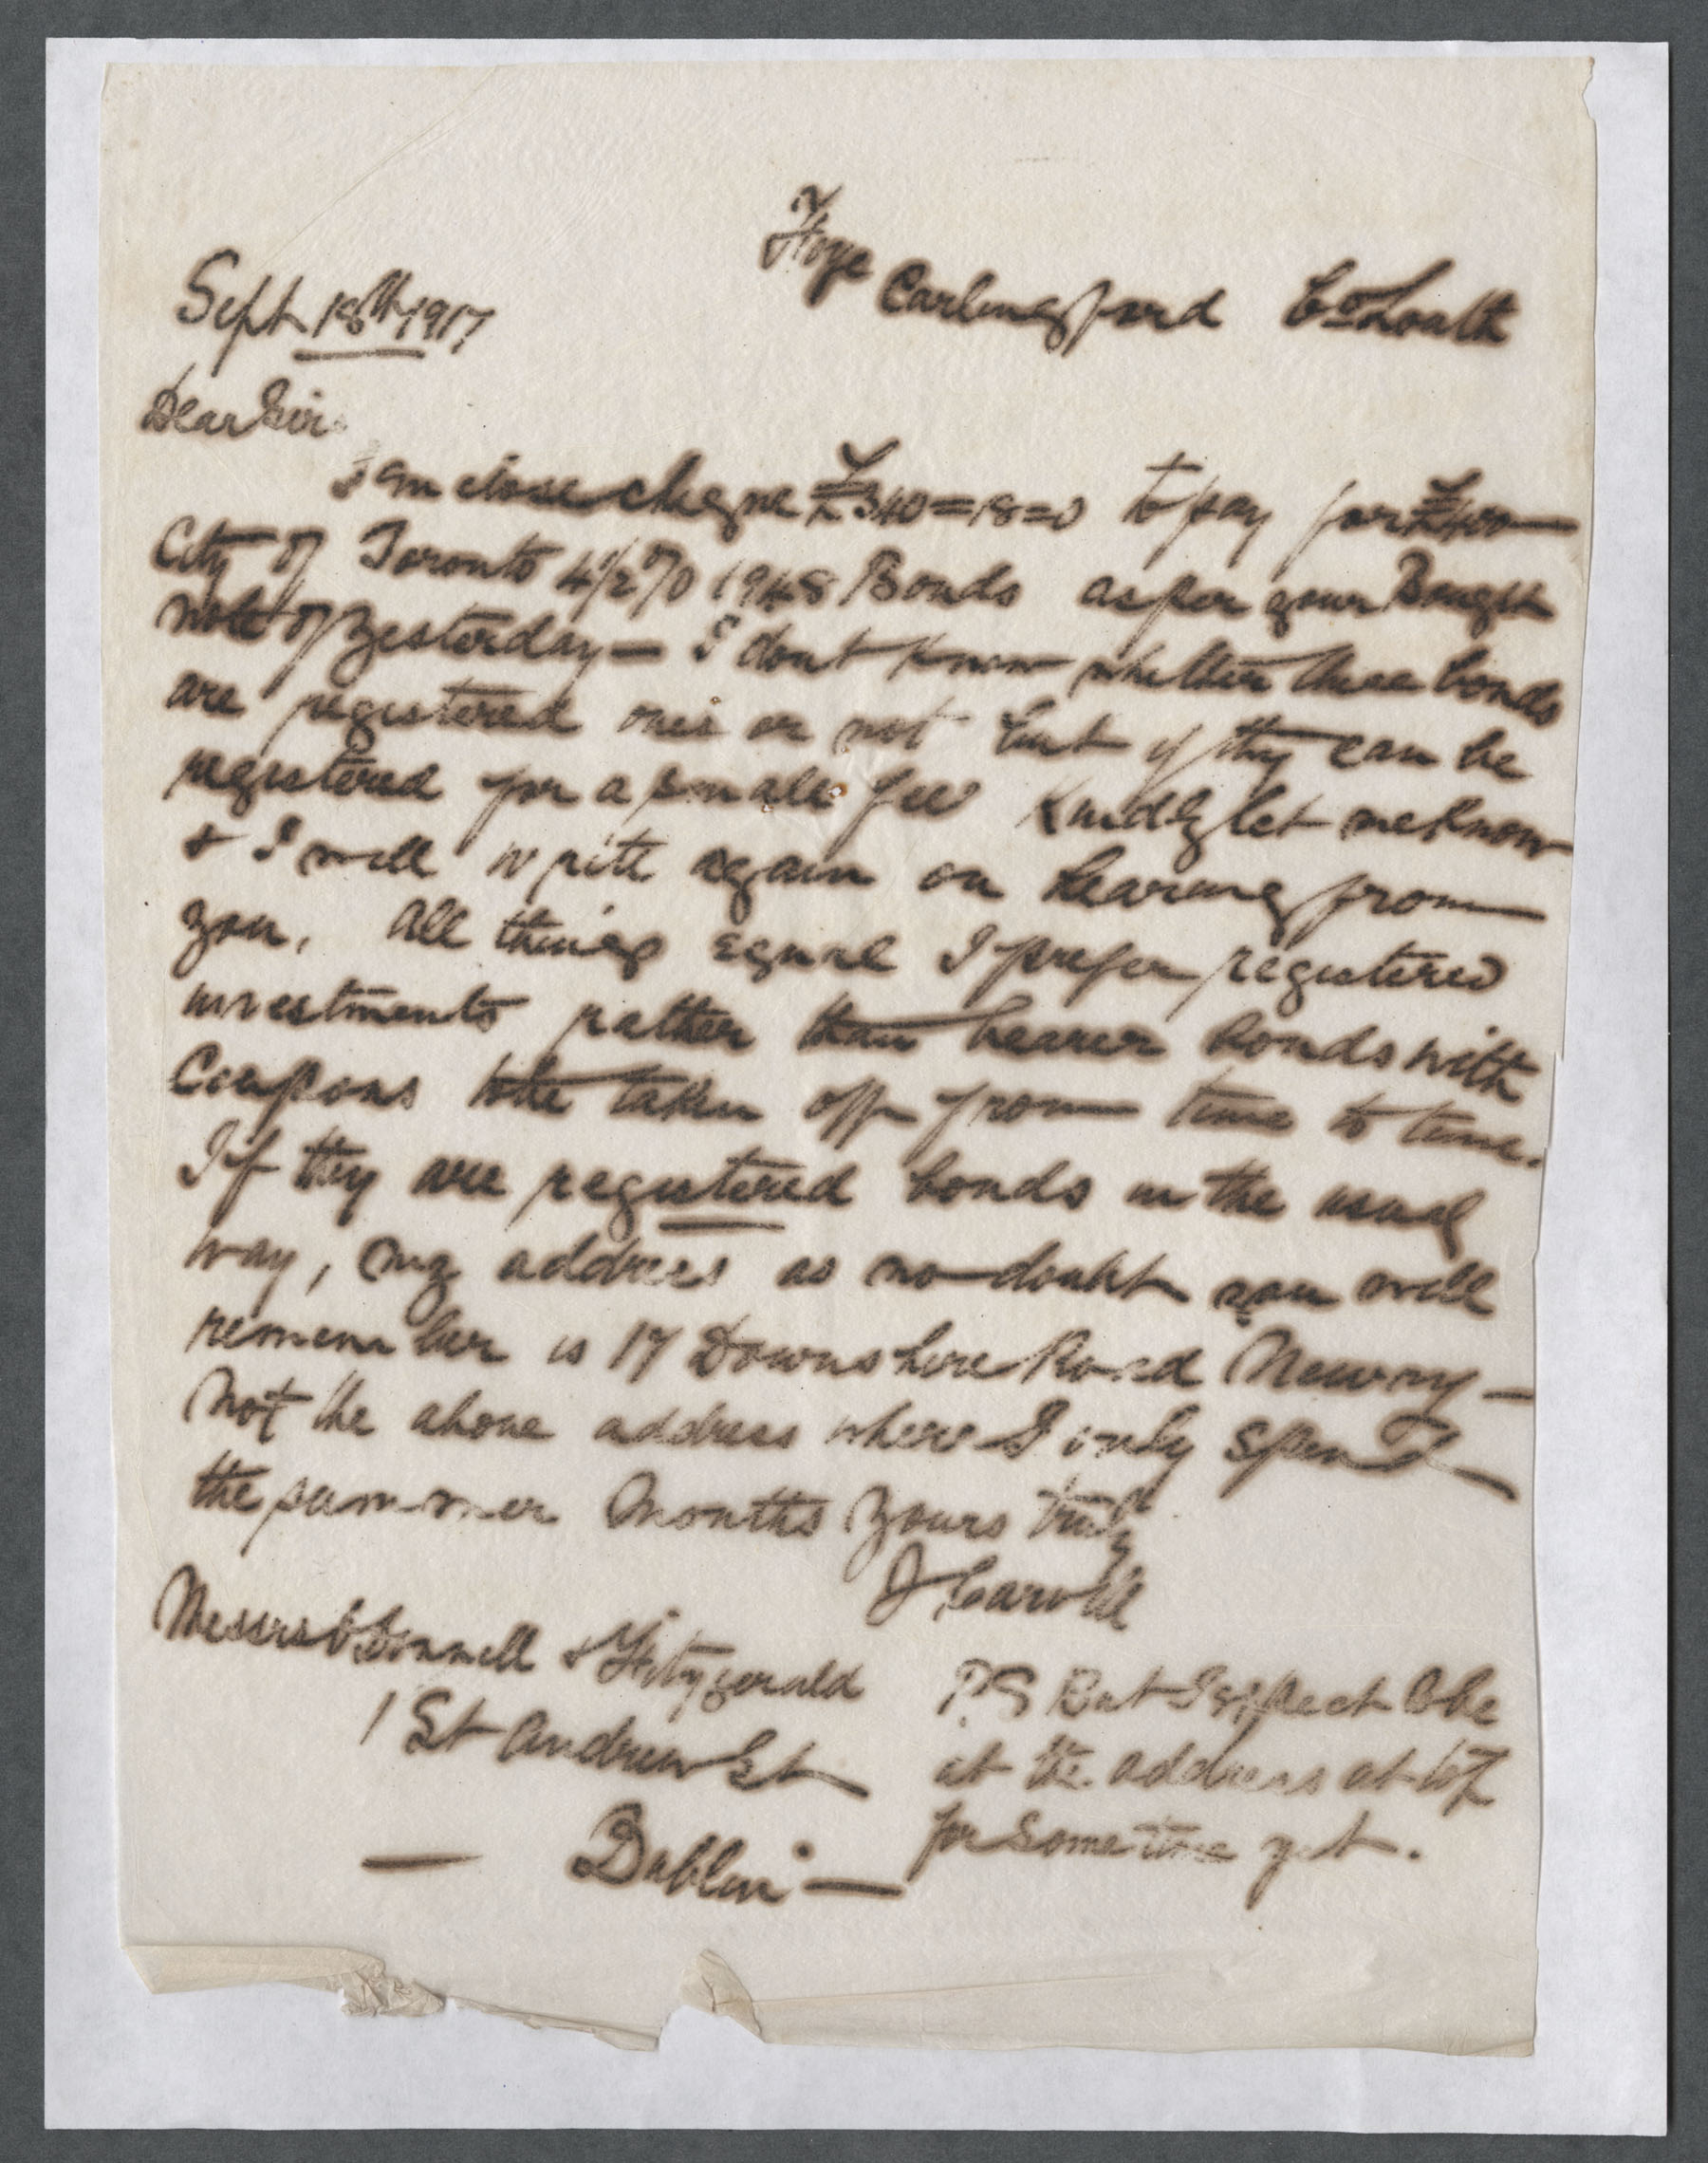 Foye Carlingford Co Louth
Sept 18th 1917
Dear Sir
I enclose cheque £340=18=0 to pay for £400
City of Toronto 4½% 1948 Bonds as per your Bought
note of yesterday — I dont know whether these bonds
are registered ones or not but if they can be
registered for a small fee Kindly let me know
& I will write again on hearing from
you. All things equal I prefer registered
investments rather than bearer bonds with
Coupons to be taken off from time to time.
If they are registered bonds in the usual
way, my address as no doubt you will
remember is 17 Downshire Road Newry —
Not the above address where I only spend
the summer months Yours truly
J Carroll
Messrs O'Donnell & Fitzgerald
1 St Andrew St
— Dublin —
PS But I expect to be
at the address at top
for some time yet.